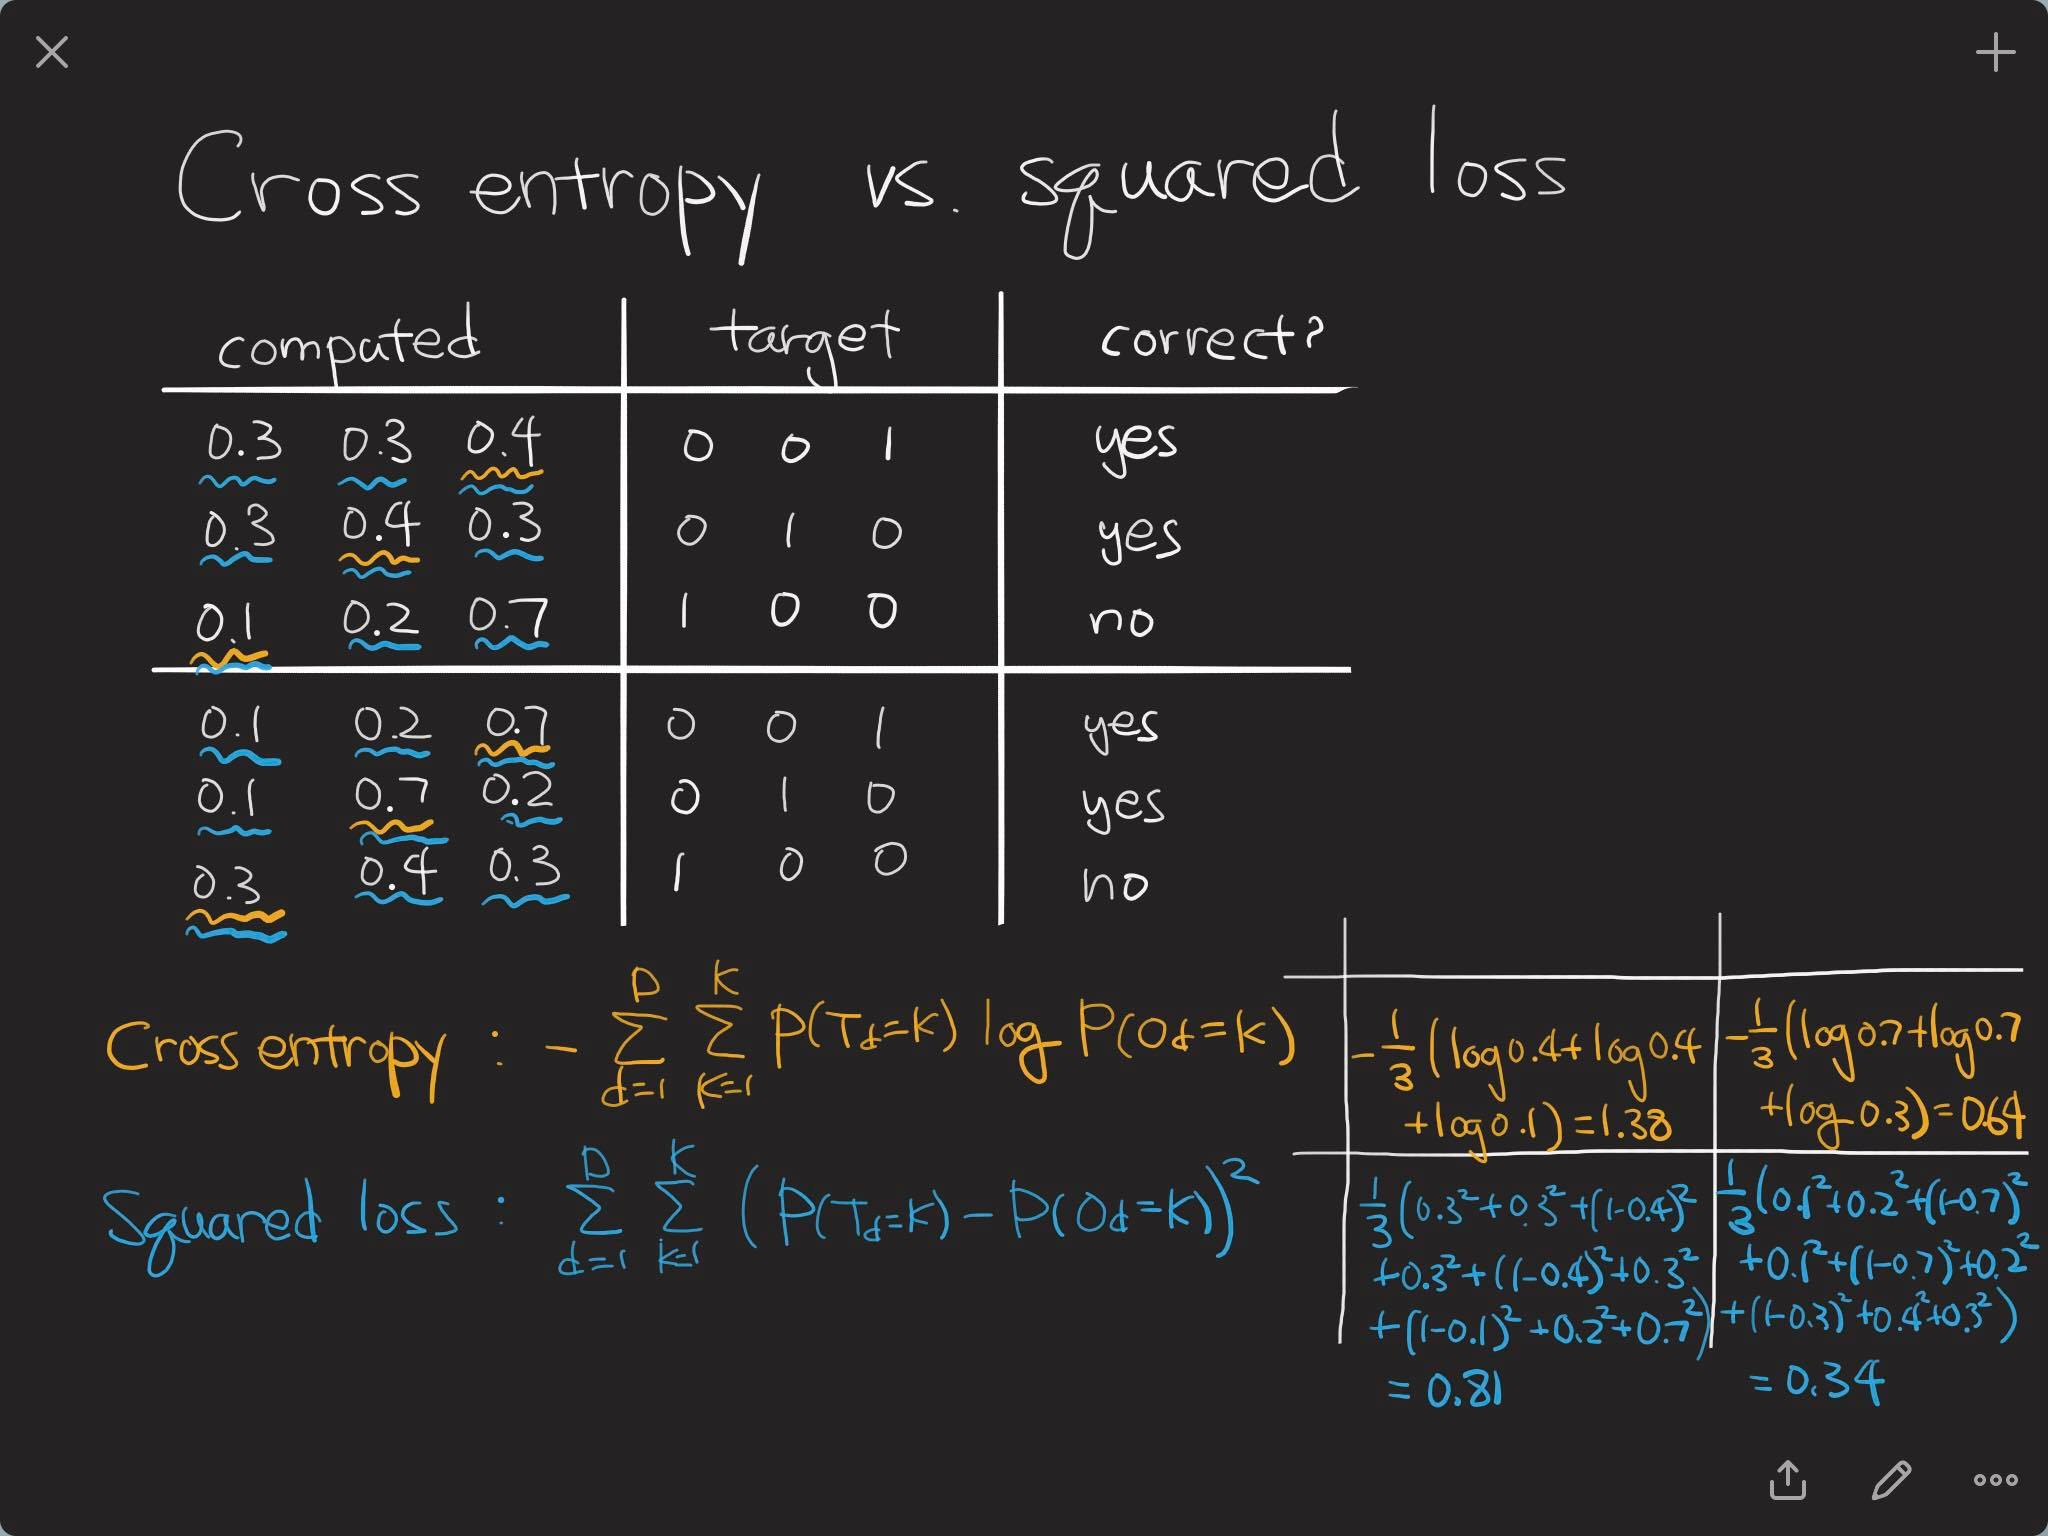 Cross entropy vs. squared loss
computed target correct?
0.3 0.3 0.4 0 0 1 yes
0.3 0.4 0.3 0 1 0 yes
0.1 0.2 0.7 1 0 0 no
0.1 0.2 0.7 0 0 1 yes
0.1 0.7 0.2 0 1 0 yes
0.3 0.4 0.3 1 0 0 no
Cross entropy : - ∑_{d=1}^{D} ∑_{K=1}^{K} P(T_d=K) log P(O_d=K)
-1/3 (log0.4+log0.4
+log0.1)=1.38
-1/3 (log0.7+log0.7
+log0.3)=0.64
Squared loss : ∑_{d=1}^{D} ∑_{k=1}^{K} (P(T_d=K) - P(O_d=K))²
1/3 (0.3²+0.3²+(1-0.4)²
+0.3²+(1-0.4)²+0.3²
+(1-0.1)²+0.2²+0.7²)
= 0.81
1/3 (0.1²+0.2²+(1-0.7)²
+0.1²+(1-0.7)²+0.2²
+(1-0.3)²+0.4²+0.3²)
= 0.34